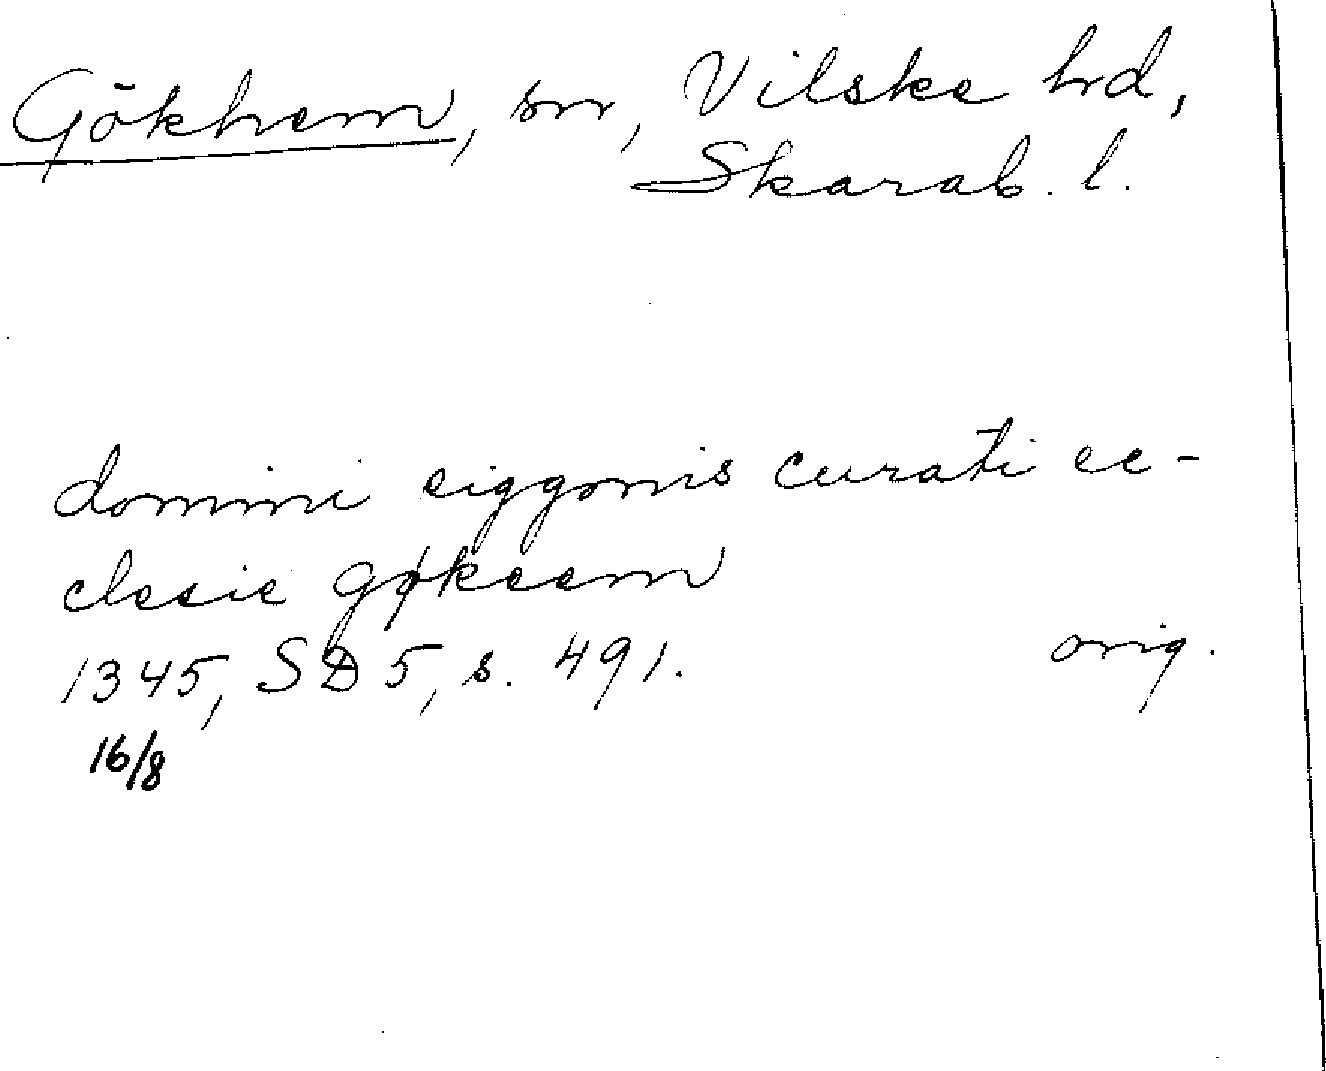 Gökhem, sn, Vilske hrd,
Skarab. l.
domini eiggonis curati ec-
clesie gøkeem
1345, SD 5, s. 491. orig.
16/8